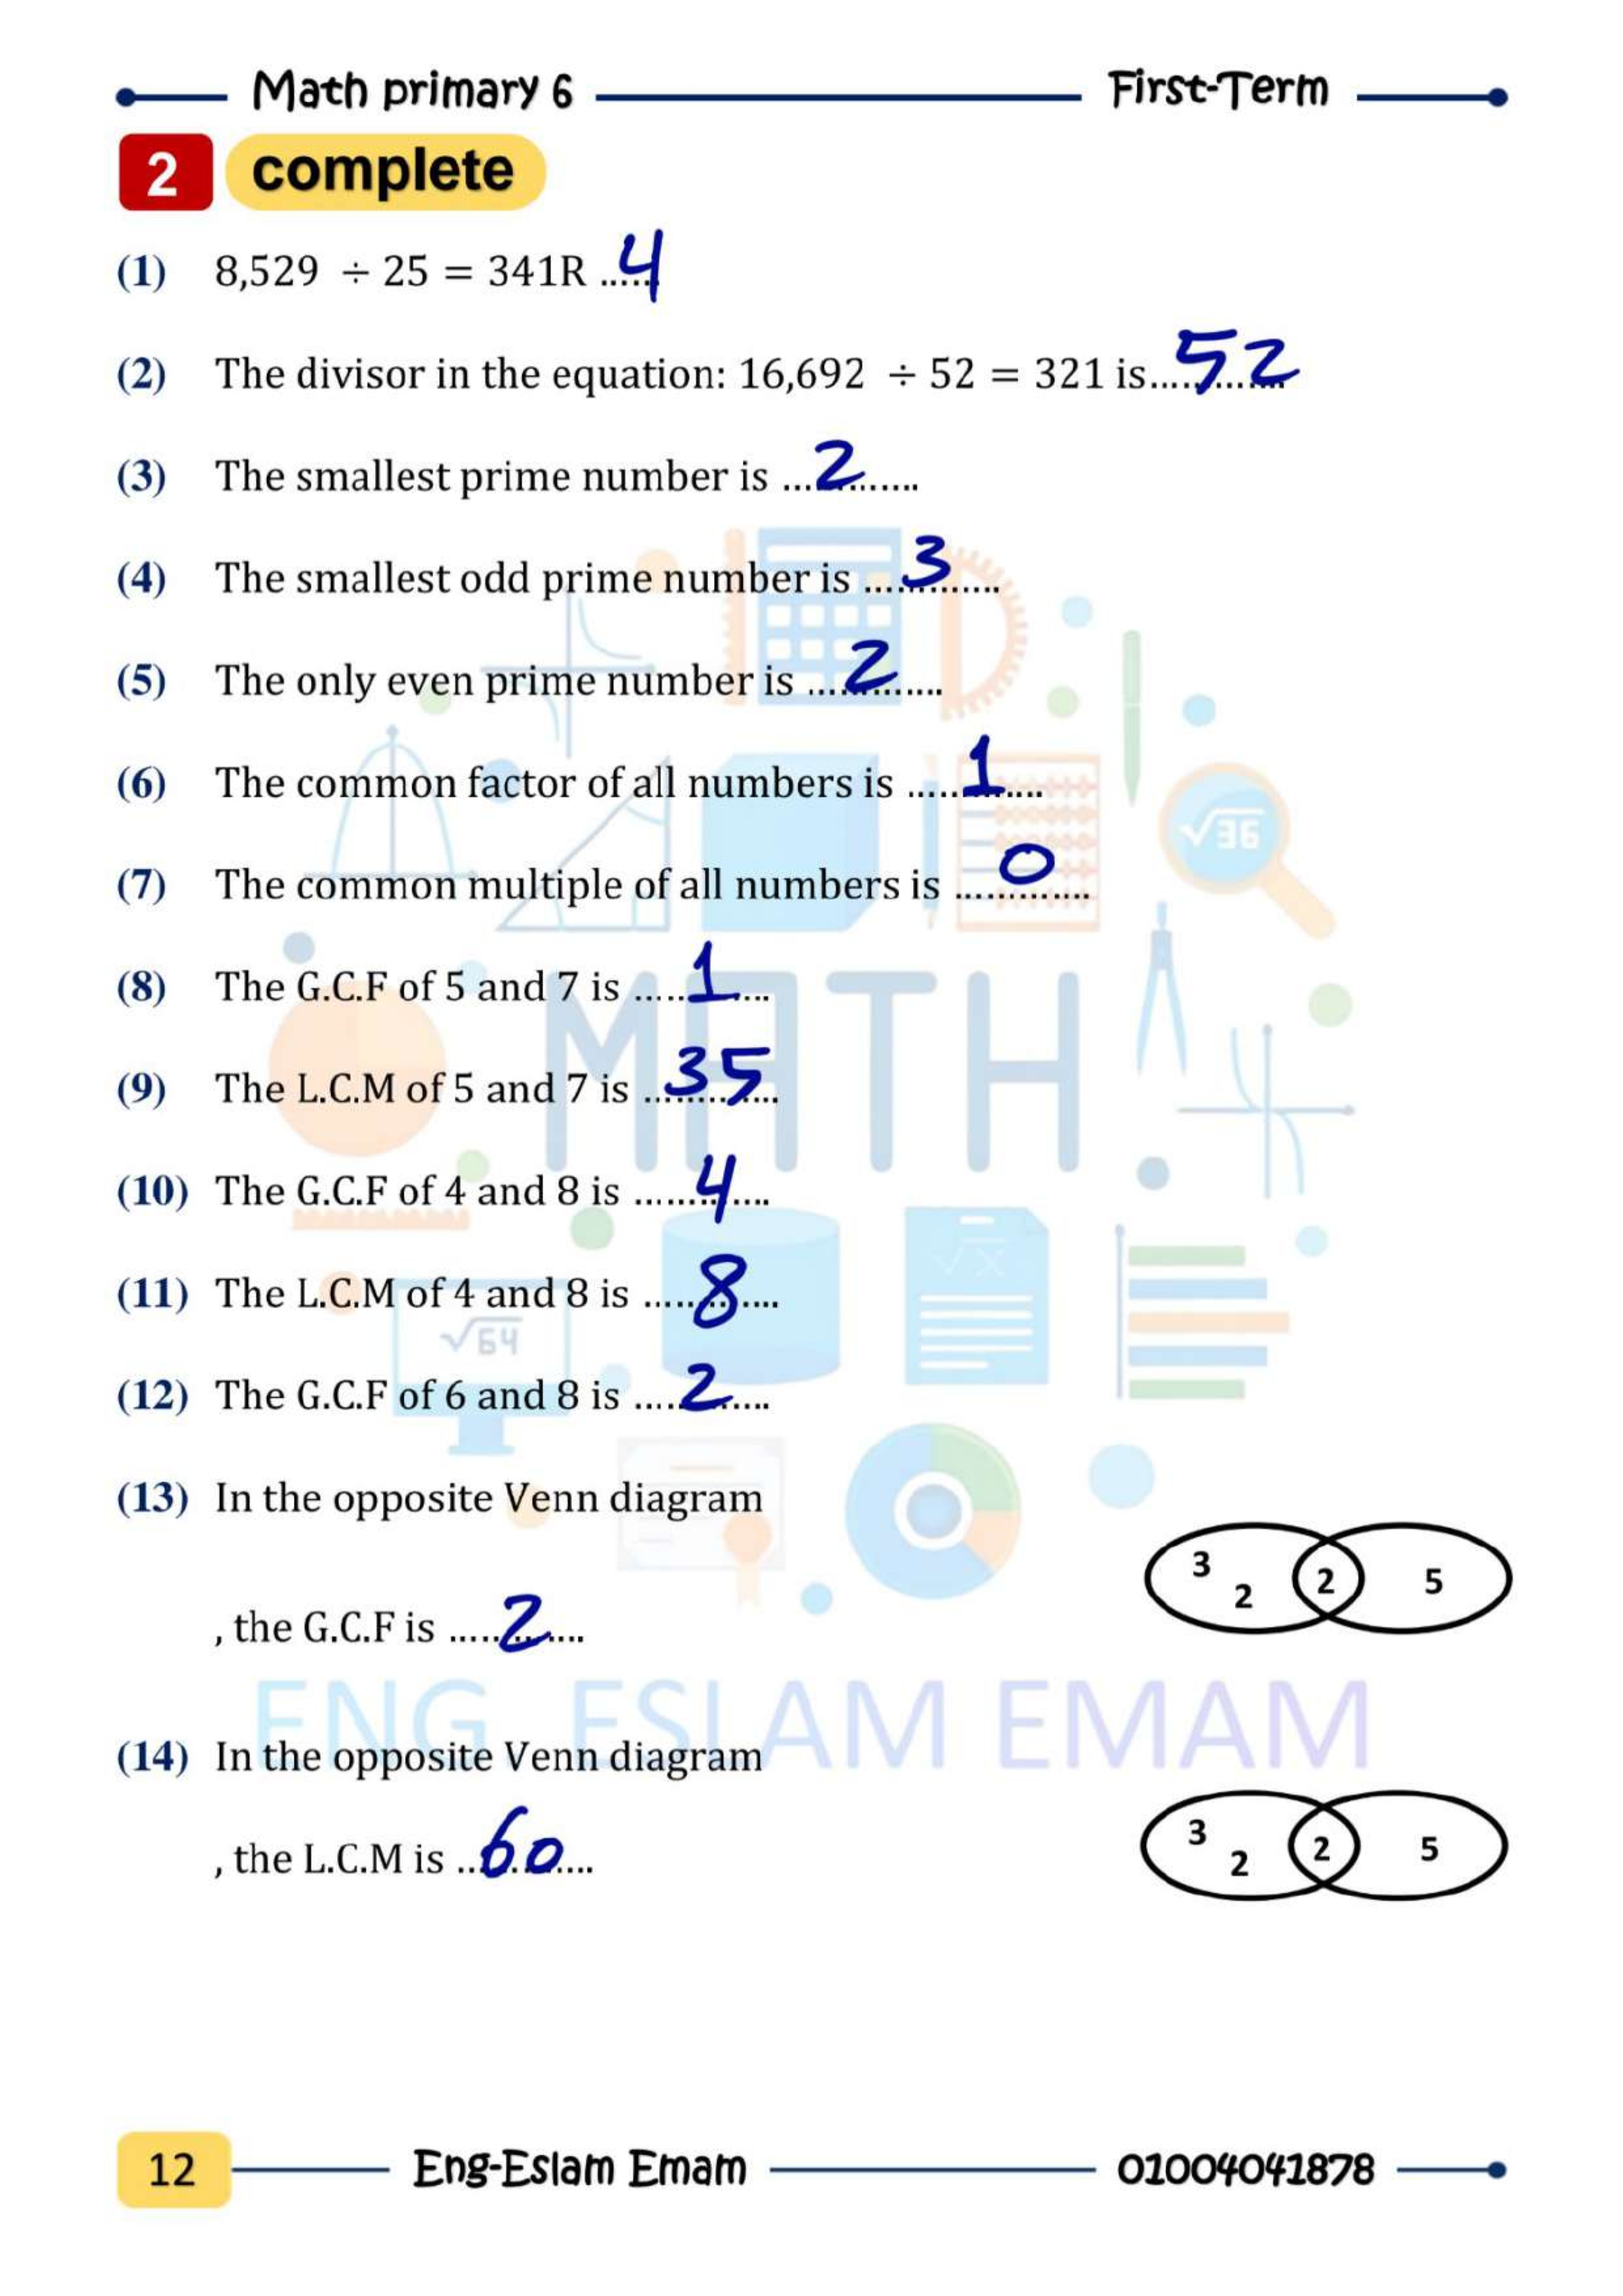 Math primary 6 First-Term
2 complete
(1) 8,529 ÷ 25 = 341R ...... 4
(2) The divisor in the equation: 16,692 ÷ 52 = 321 is............. 52
(3) The smallest prime number is ............. 2
(4) The smallest odd prime number is ............. 3
(5) The only even prime number is ............. 2
(6) The common factor of all numbers is ............. 1
√36
(7) The common multiple of all numbers is ............. 0
(8) The G.C.F of 5 and 7 is ............. 1
MATH
(9) The L.C.M of 5 and 7 is ............. 35
(10) The G.C.F of 4 and 8 is ............. 4
√x
(11) The L.C.M of 4 and 8 is ............. 8
√64
(12) The G.C.F of 6 and 8 is ............. 2
(13) In the opposite Venn diagram
3 2 2 5
, the G.C.F is ............. 2
ENG ESLAM EMAM
(14) In the opposite Venn diagram
3 2 2 5
, the L.C.M is ............. 60
12 Eng-Eslam Emam 01004041878